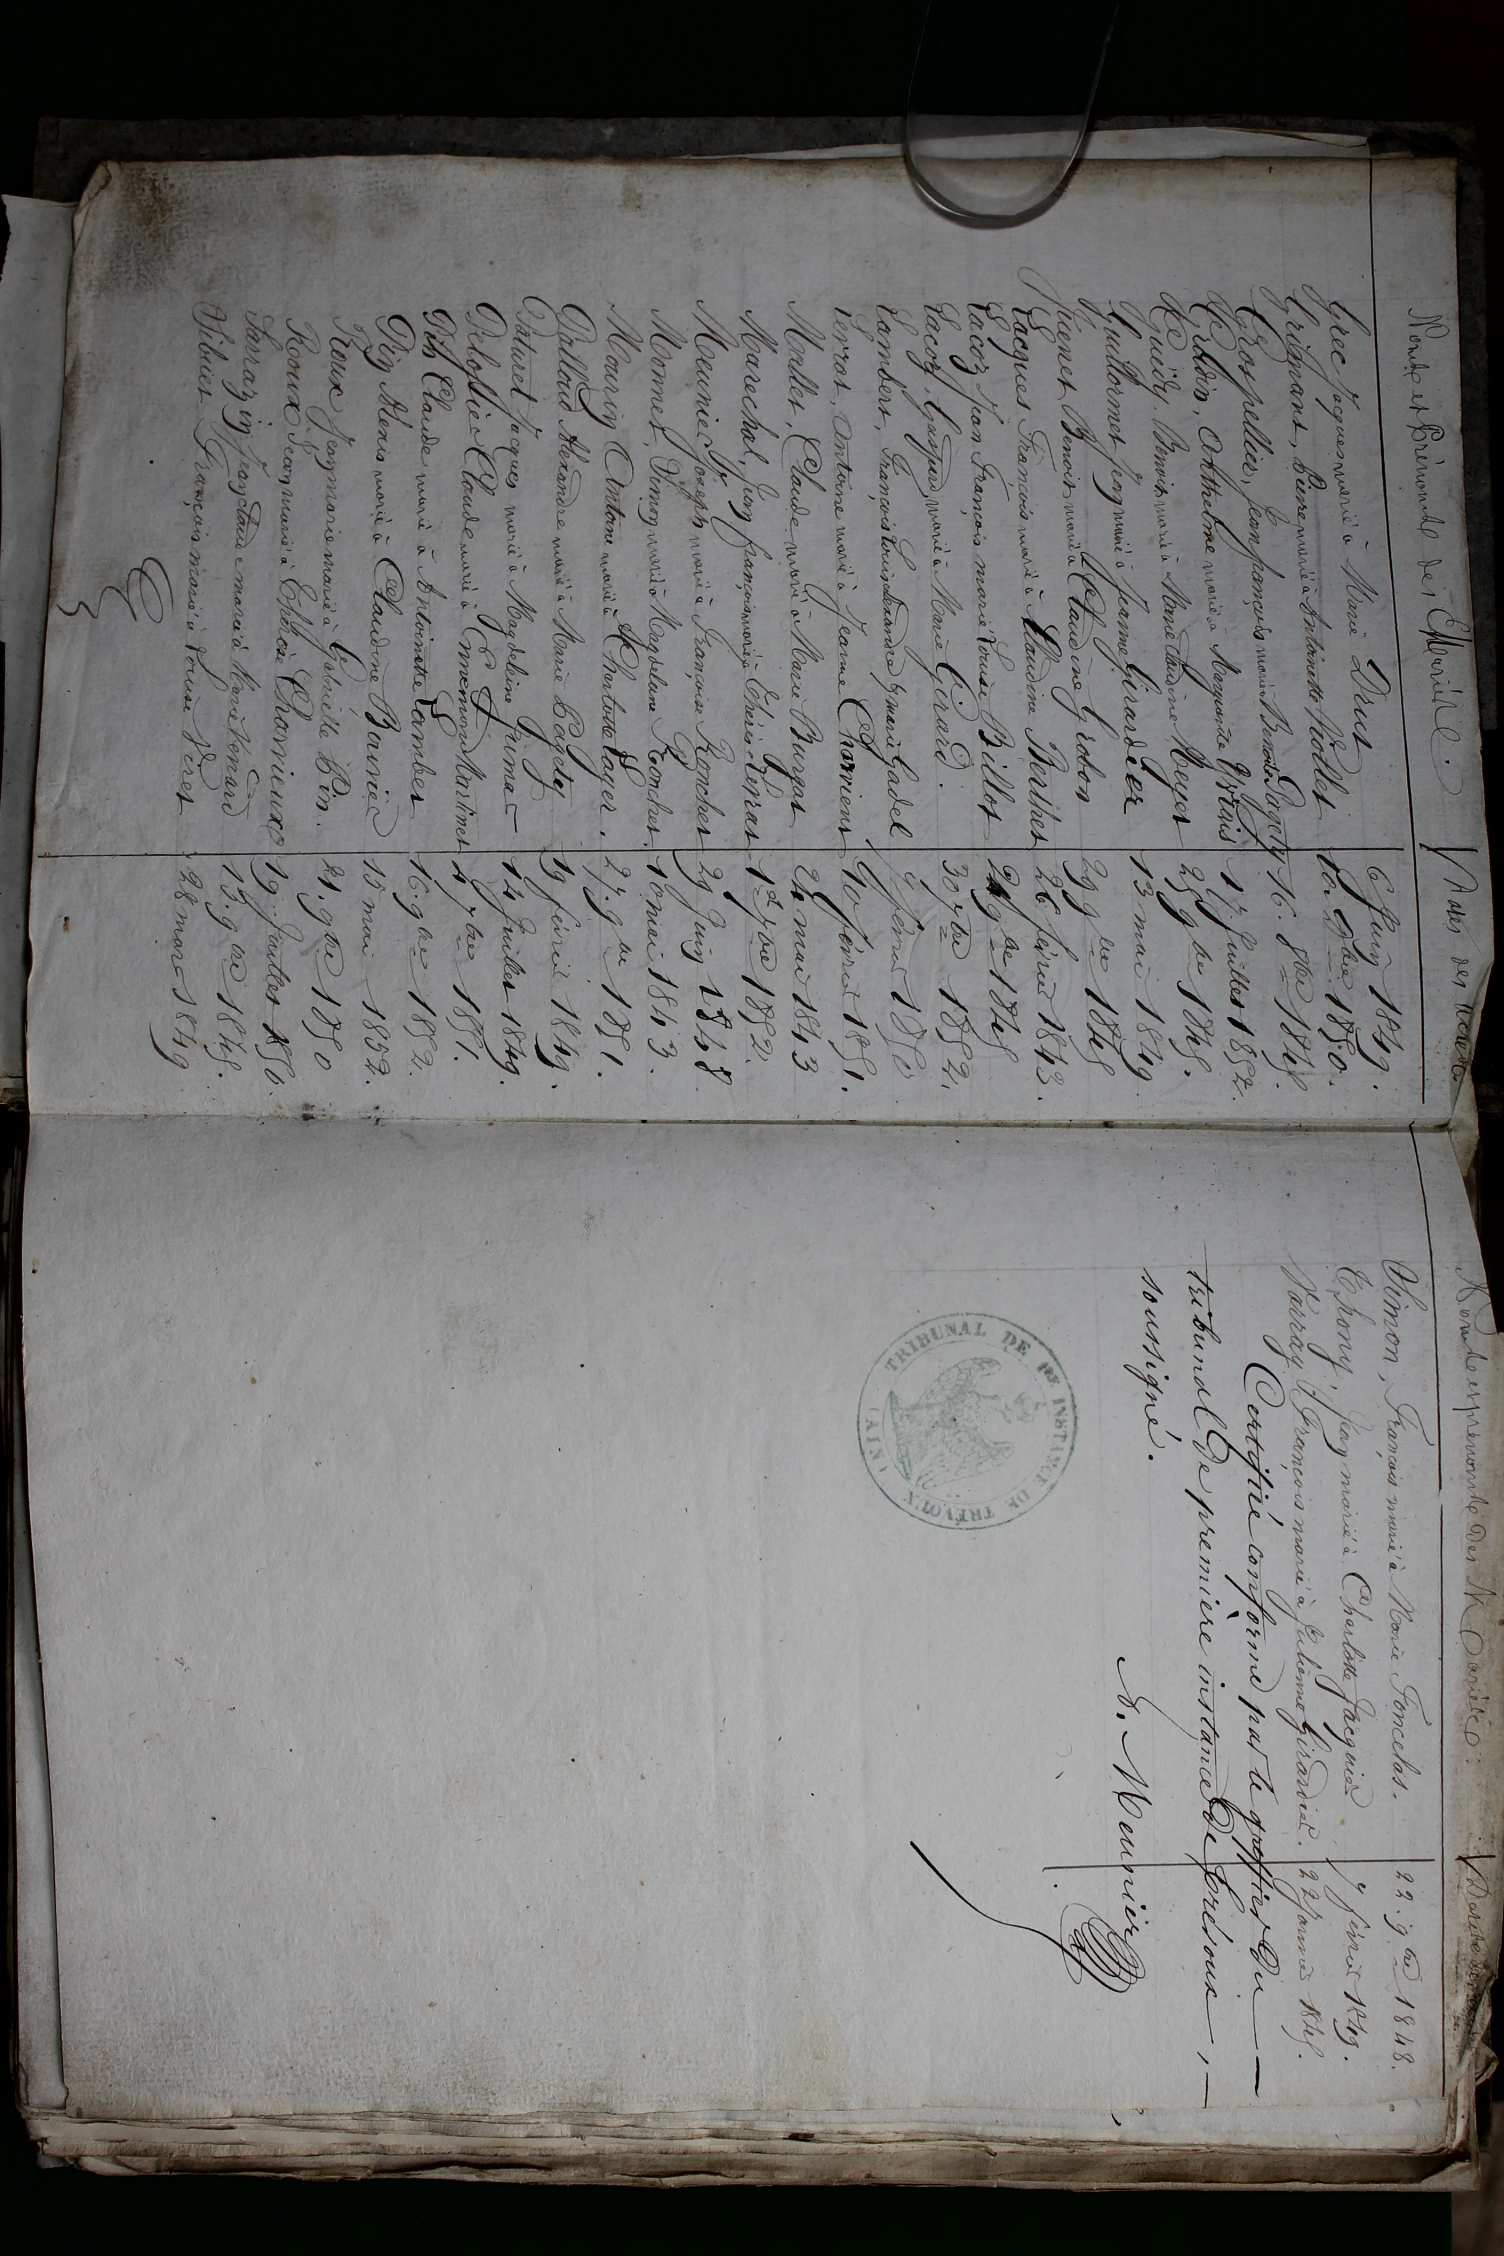 Noms et Prénoms des Mariés. Dates des actes
Grec Jacques marié à Marie Drut 6 Juin 1849.
Grignant, Pierre marié à Antoinette Viollet 10 9bre 1850.
Grospellier, Jean françois marié à Benoite Pagety 16. 8bre 1848.
Gerdin, Anthelme marié à Marguerite 17 Juillet 1852.
Guédy. Benoit marié à Marie Claudine Meyer 25 9bre 1848.
Guillermet Jean marié à Jeanne Girardier 13 mai 1849.
Guenet, Benoit marié à Claudine Grobon 29 9bre 1848
Jacques François marié à Claudine Berthet 26 février 1843.
Lacoz Jean François marié Louise Billot 29 9bre 1848
Lacoz. Gaspard marié à Marie Girard. 30 7bre 1852.
Lambert, François Louis marié Gadel 7 février 1850
Lerrat, Antoine marié à Jeanne Charvieux 10 février 1851.
Mallet, Claude marié à Marie Burgat 24 mai 1843
Marechal, Jean françois marié à Thérèse Lerrat 1er 7bre 1852.
Meunier Joseph marié à Françoise Ronchet 29 Juin 1848.
Monnet Simon marié à Magdelaine Ronchet. 10 mai 1843.
Mouriez Antoine marié à Charlotte Royer. 27. 9bre 1851.
Pallaud Alexandre marié à Marie Pagety 19 février 1849.
Paturel Jacques marié à Magdeleine Guma 14 Juillet 1849.
Pelossier Claude marié à Ennemonde Martinet 4 7bre 1851.
Pth Claude marié à Antoinette Combet 16. 9bre 1852.
Piq Alexis marié à Claudine Bannier 15 mai 1852.
Roux Jean marie marié à Gabrielle Bin. 21. 9bre 1850
Roux Jean marié à Chamieux 19. Juillet 1850.
Sarrazin Jean Claude marié à Marie Venard 15. 9bre 1848.
Sibuet François marié à Louise Néret 28 mars 1849
Noms et prénoms des Mariés. Dates des actes
Simon, François marié à Marie Foncelas. 22. 9bre 1848.
Thony, Jean marié à Charlotte Jacquier 7 février 1849.
Varray François marié à Julienne Girardier. 22 Janvier 1848.
Certifié conforme par le greffier du
tribunal de première instance de Trévoux,
soussigné.
A. Meunier
TRIBUNAL DE 1RE INSTANCE DE TRÉVOUX (AIN)